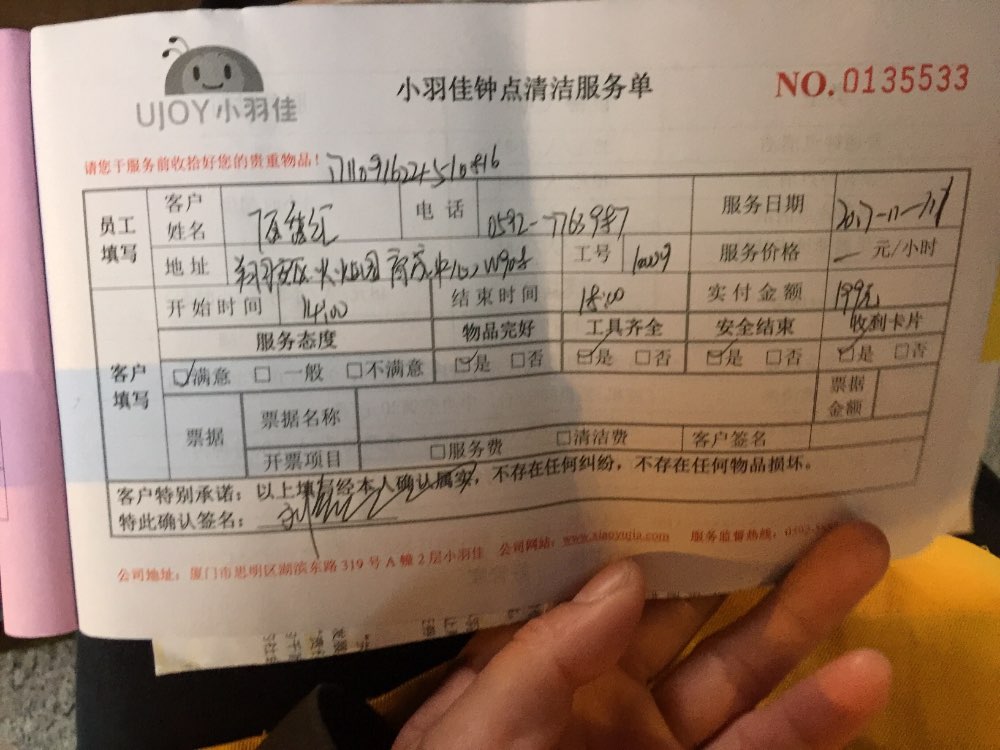 UJOY小羽佳
小羽佳钟点清洁服务单
NO.0135533
请您于服务前收拾好您的贵重物品!
员工填写
客户姓名
电话
0592-7763987
服务日期
2017-11-
地址
工号
服务价格
元/小时
客户填写
开始时间
14:00
结束时间
18:00
实付金额
199元
服务态度
物品完好
工具齐全
安全结束
收到卡片
☑满意 □ 一般 □不满意
☑是 □否
☑是 □否
☑是 □否
☑是 □否
票据
票据名称
票据金额
开票项目
□服务费 □清洁费
客户签名
客户特别承诺:以上填写经本人确认属实,不存在任何纠纷,不存在任何物品损坏。
特此确认签名:
公司地址:厦门市思明区湖滨东路 319 号 A 幢 2 层小羽佳 公司网站:www.xiaoyujia.com 服务监督热线: